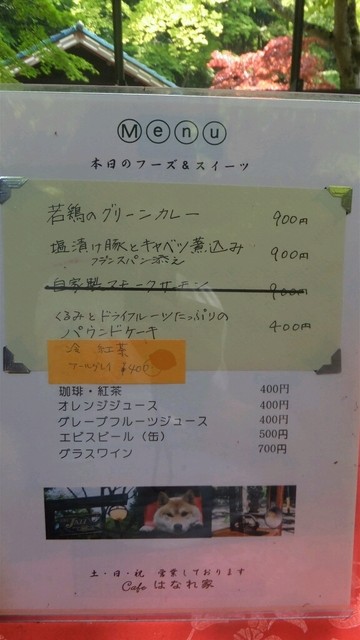 Menu
本日のフーズ&スイーツ
若鶏のグリーンカレー 900円
塩漬け豚とキャベツ煮込み 900円
フランスパン添え
自家製スモークサーモン 900円
くるみとドライフルーツたっぷりの
パウンドケーキ 400円
冷 紅茶
アールグレイ ¥400
珈琲・紅茶 400円
オレンジジュース 400円
グレープフルーツジュース 400円
エビスビール(缶) 500円
グラスワイン 700円
土・日・祝 営業しております
Cafe はなれ家